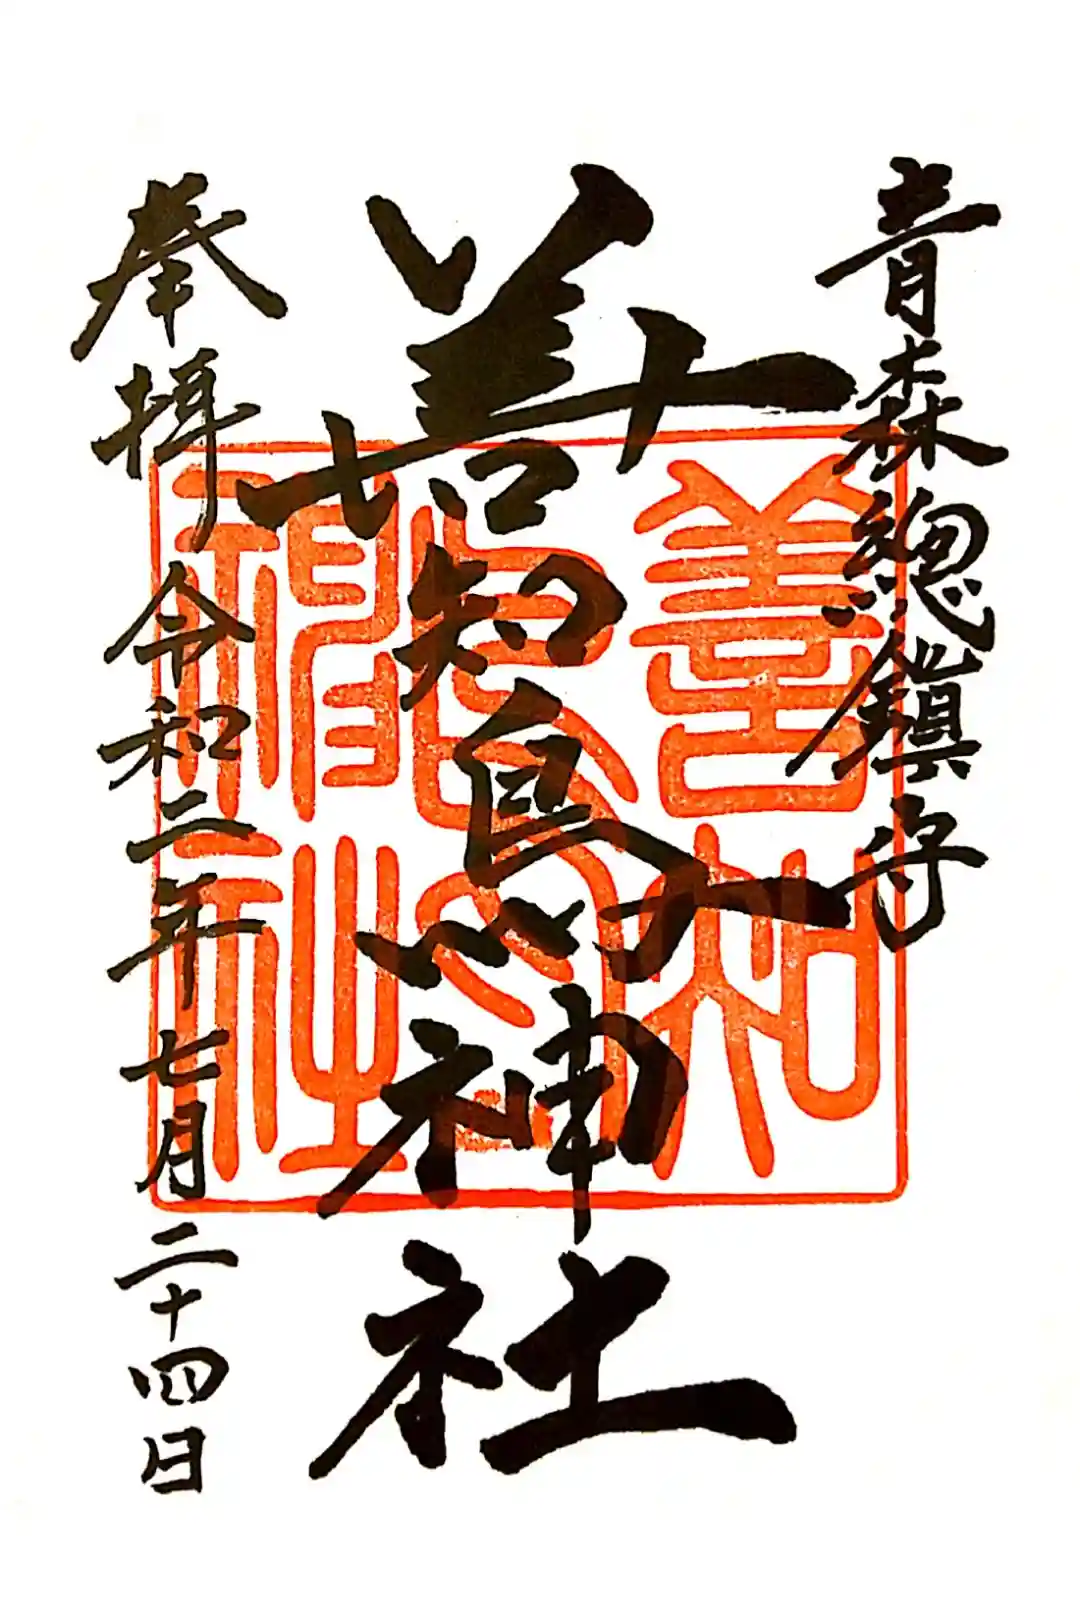 青森總鎮守
善知鳥神社
奉拝 令和二年七月二十四日
善知
鳥
神社